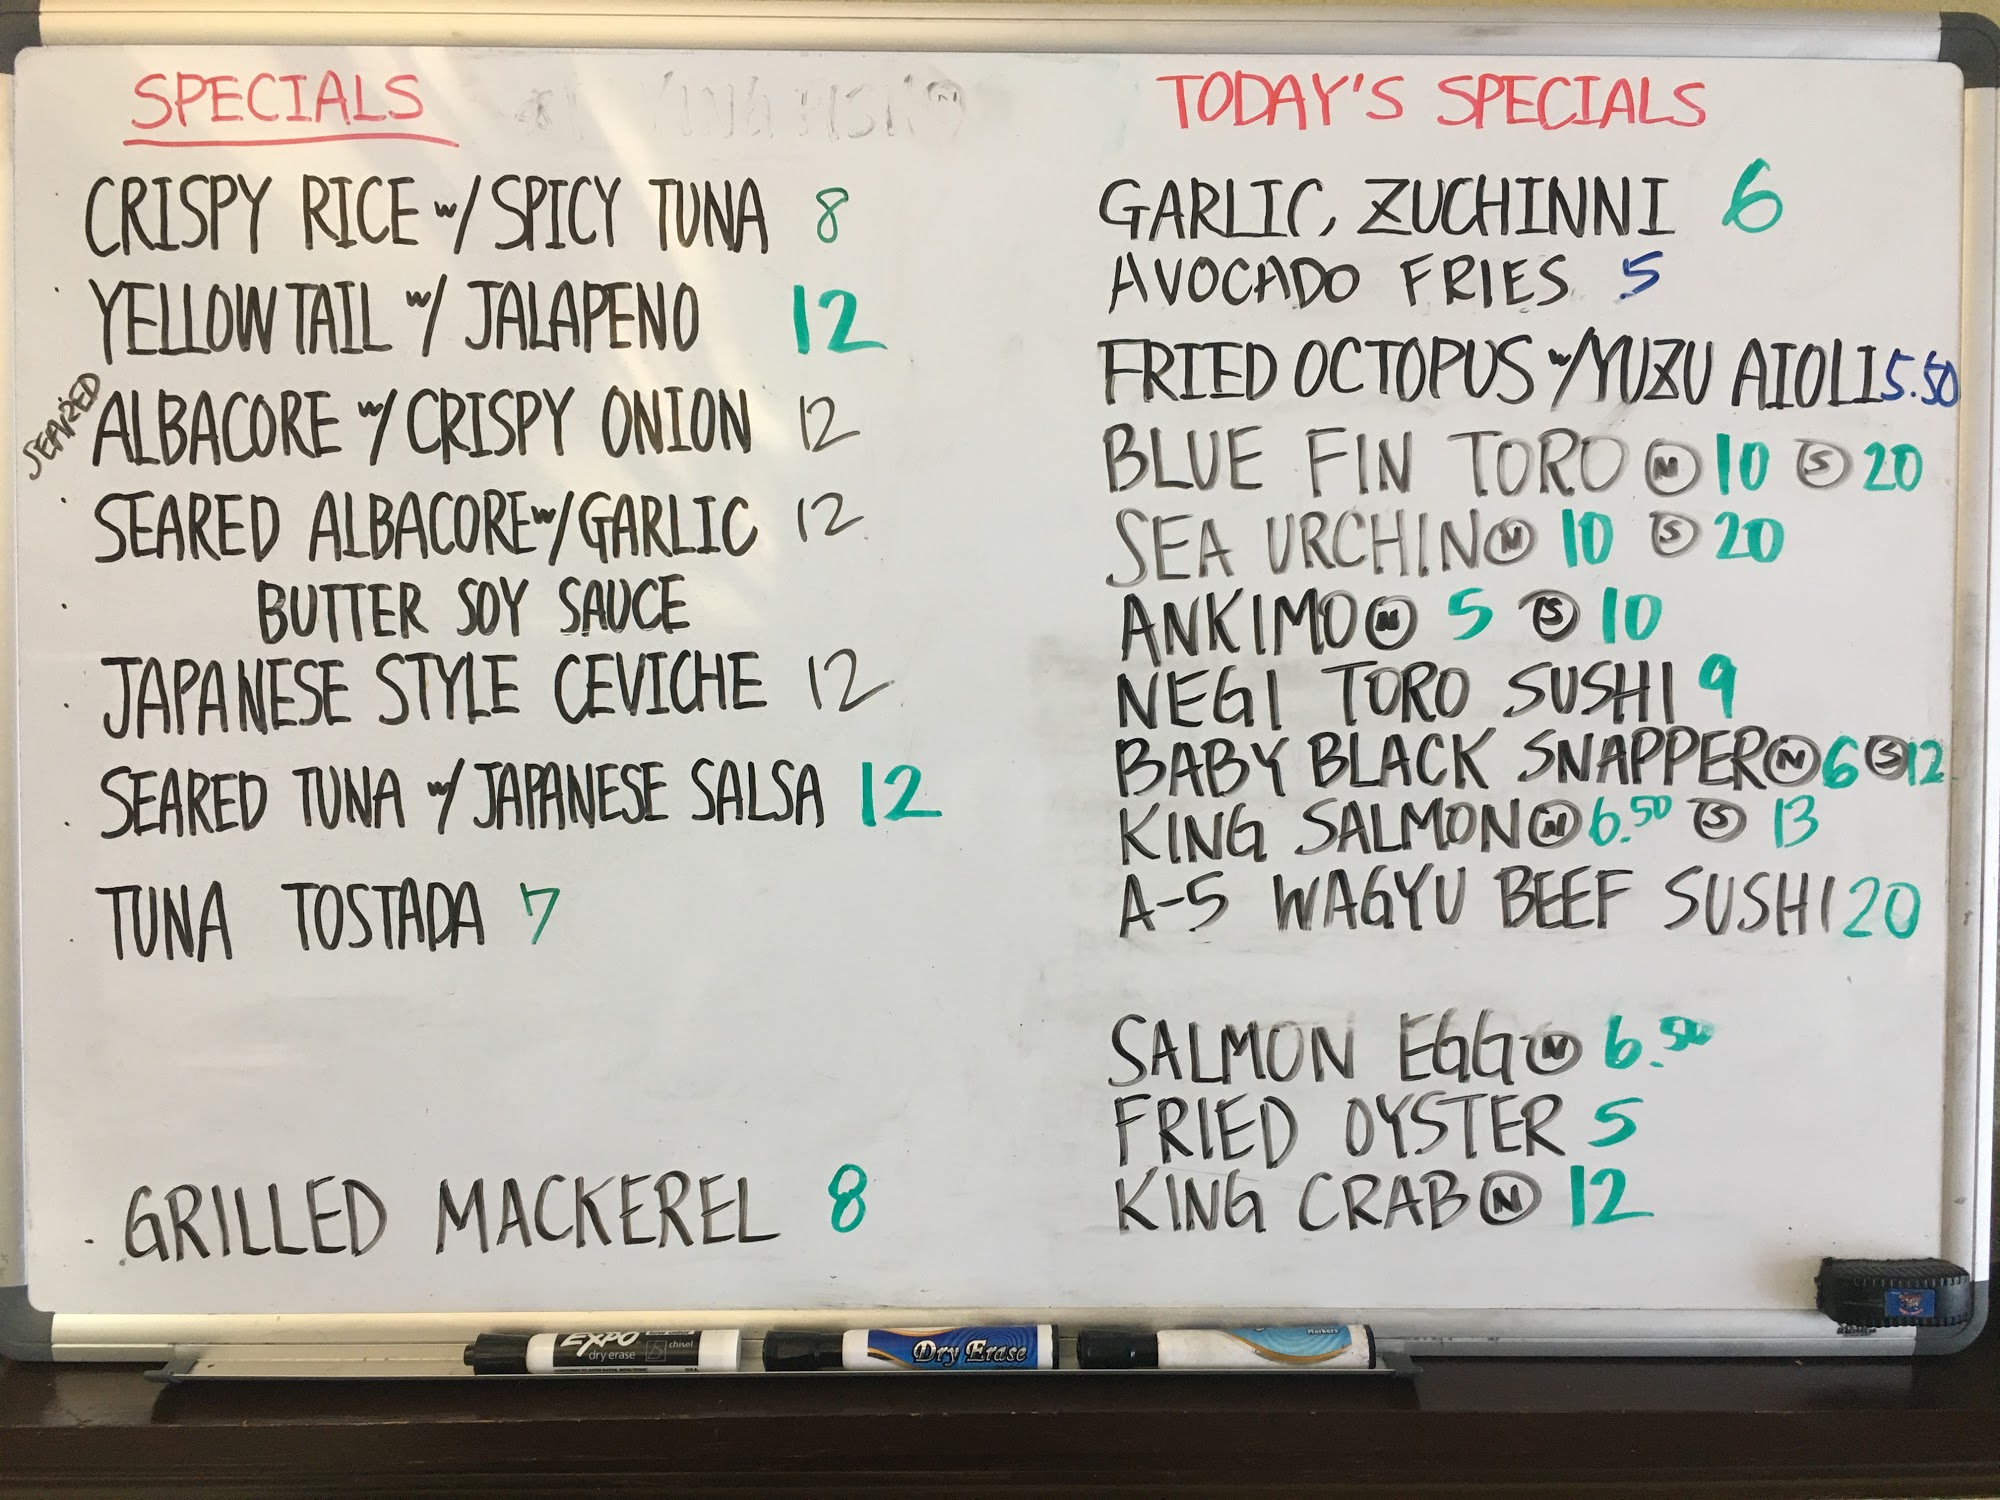 SPECIALS
CRISPY RICE w/ SPICY TUNA 8
YELLOWTAIL w/ JALAPENO 12
SEARED ALBACORE w/ CRISPY ONION 12
SEARED ALBACORE w/ GARLIC 12
BUTTER SOY SAUCE
JAPANESE STYLE CEVICHE 12
SEARED TUNA w/ JAPANESE SALSA 12
TUNA TOSTADA 7
GRILLED MACKEREL 8
TODAY'S SPECIALS
GARLIC, ZUCHINNI 6
AVOCADO FRIES 5
FRIED OCTOPUS w/ YUZU AIOLI 5.50
BLUE FIN TORO Ⓝ 10 Ⓢ 20
SEA URCHIN Ⓝ 10 Ⓢ 20
ANKIMO Ⓝ 5 Ⓢ 10
NEGI TORO SUSHI 9
BABY BLACK SNAPPER Ⓝ 6 Ⓢ 12
KING SALMON Ⓝ 6.50 Ⓢ 13
A-5 WAGYU BEEF SUSHI 20
SALMON EGG Ⓝ 6.50
FRIED OYSTER 5
KING CRAB Ⓝ 12
EXPO
dry erase chisel
Dry Erase
Markers